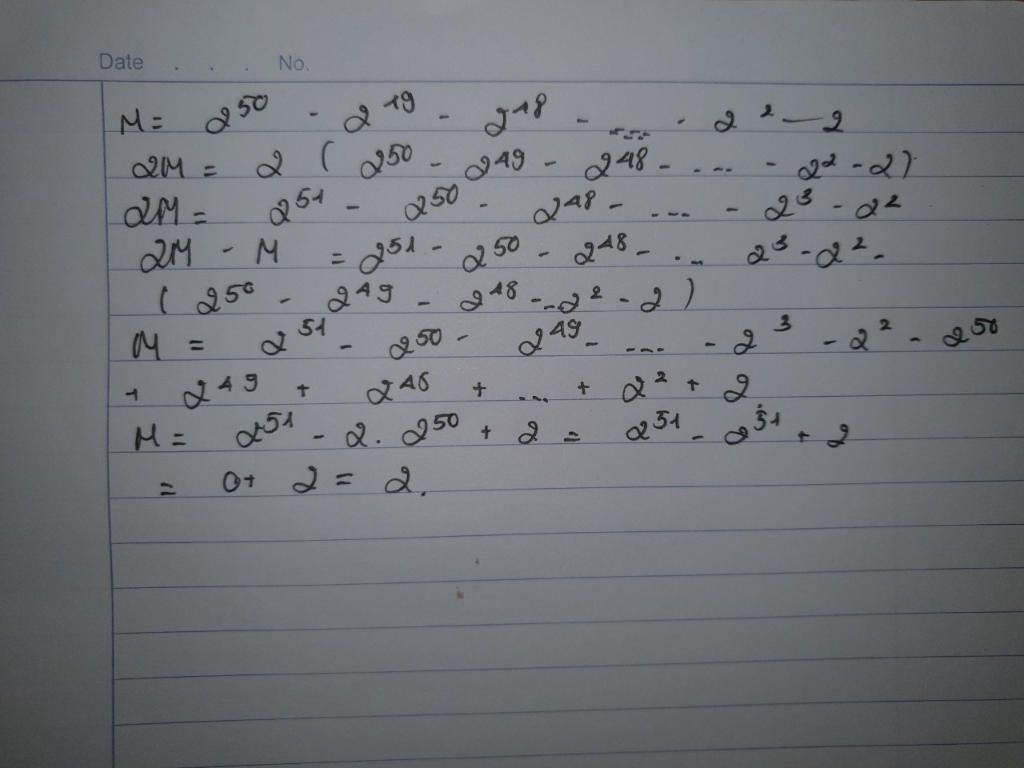 Date . . . No.
M = 2^50 - 2^49 - 2^48 - .... - 2^2 - 2
2M = 2 ( 2^50 - 2^49 - 2^48 - .... - 2^2 - 2 )
2M = 2^51 - 2^50 - 2^48 - .... - 2^3 - 2^2
2M - M = 2^51 - 2^50 - 2^48 - ... 2^3 - 2^2 -
( 2^50 - 2^49 - 2^48 - .. 2^2 - 2 )
M = 2^51 - 2^50 - 2^49 - .... - 2^3 - 2^2 - 2^50
+ 2^49 + 2^48 + ... + 2^2 + 2
M = 2^51 - 2 . 2^50 + 2 = 2^51 - 2^51 + 2
= 0 + 2 = 2.